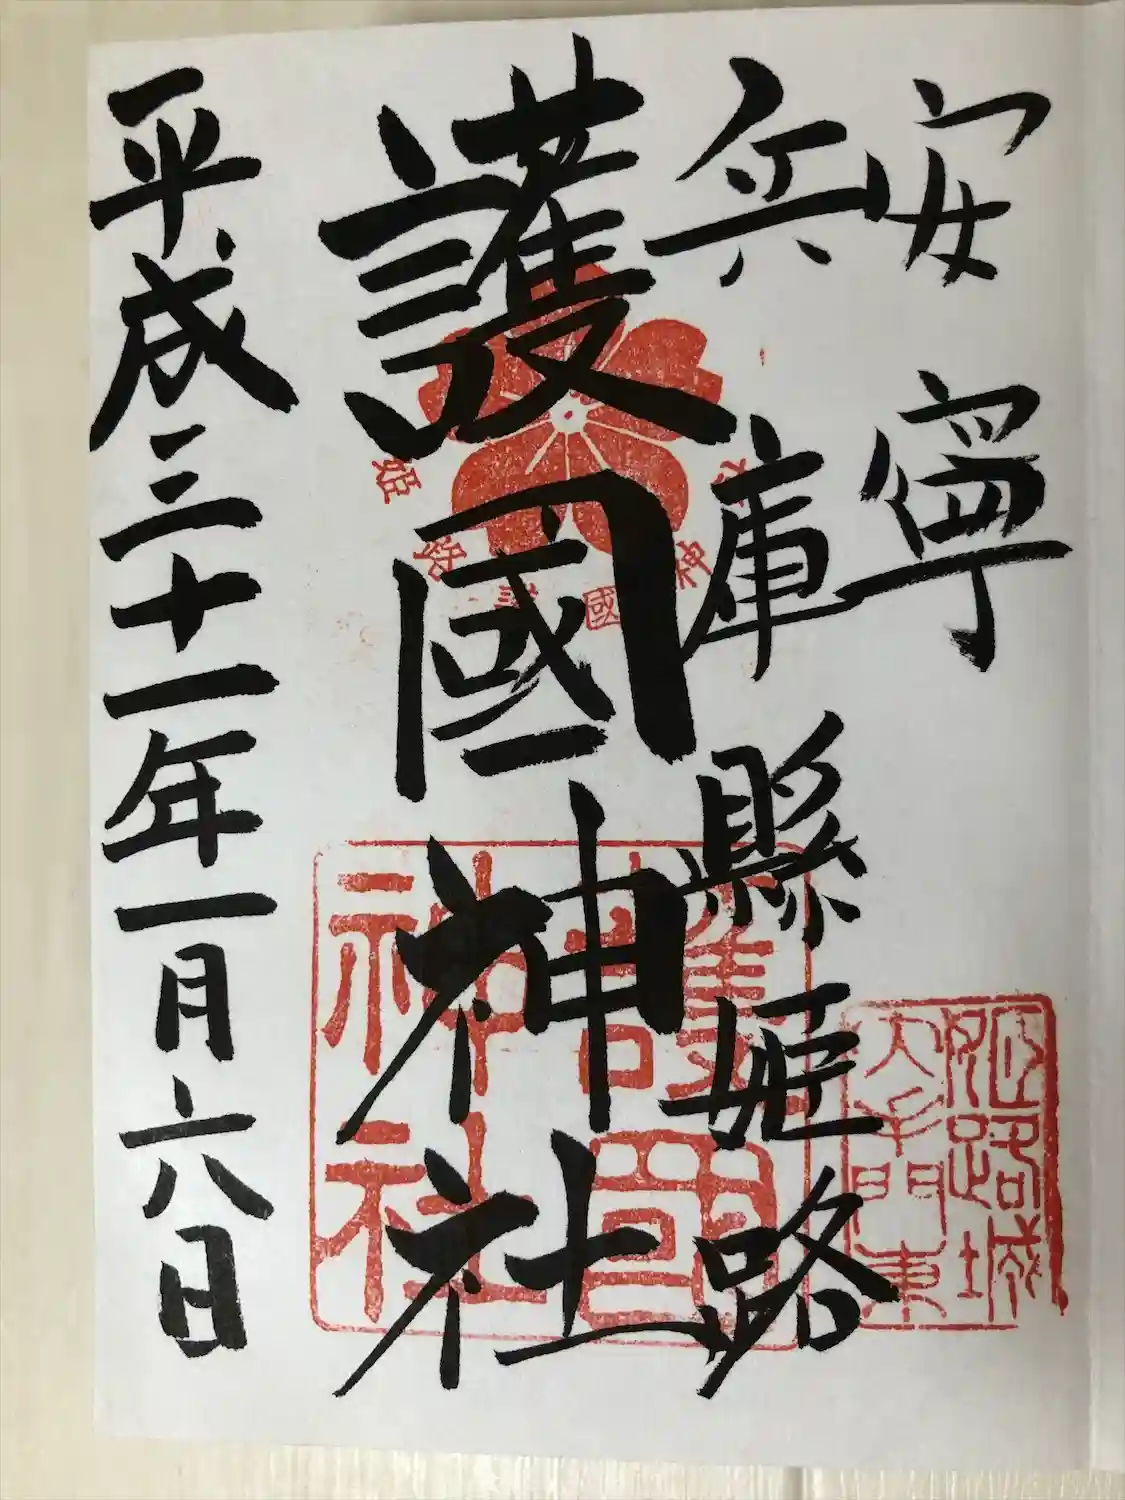 安寧
兵庫縣姫路
護國神社
平成三十一年一月六日
姫路護國神社
護國神社
姫路城
大手門東